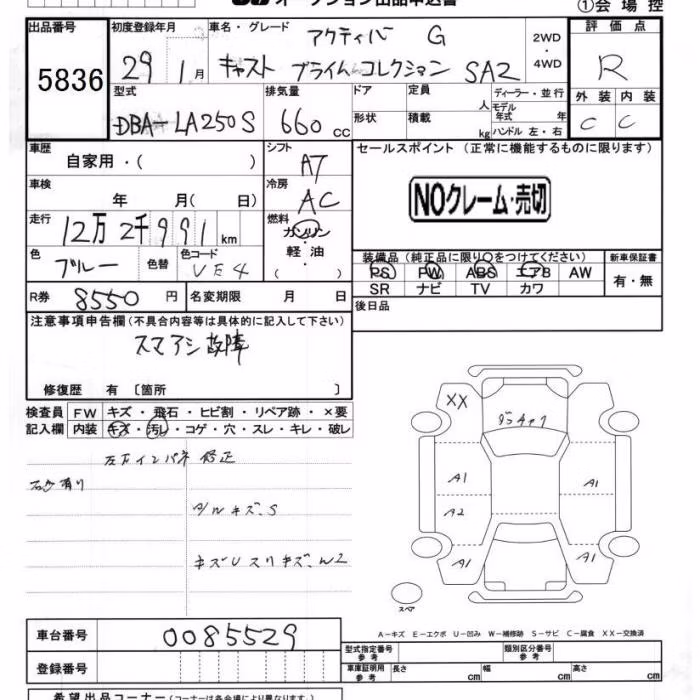 オークション出品申込書
①会場控
出品番号
5836
初度登録年月
29 1月
車名・グレード
アクティバ G
キャスト プライムコレクション SA2
2WD
・
4WD
評価点
R
型式
DBA-LA250S
排気量
660 cc
ドア
形状
定員 人
積載 kg
ディーラー・並行
モデル年式 年
ハンドル 左・右
外装 内装
C C
車歴
自家用・( )
シフト
AT
セールスポイント(正常に機能するものに限ります)
NOクレーム・売切
車検
年 月( 日)
冷房
AC
走行
12万2千991km
燃料
ガソリン
軽油
( )
色
ブルー
色替
色コード
VE4
装備品(純正品に限り○をつけてください)
PS PW ABS エアB AW
SR ナビ TV カワ
新車保証書
有・無
R券 8550円
名変期限 月 日
後日品
注意事項申告欄(不具合内容等は具体的に記入して下さい)
スマアシ故障
修復歴 有〔箇所 〕
検査員
記入欄
FW キズ・飛石・ヒビ割・リペア跡・×要
内装 キズ・汚レ・コゲ・穴・スレ・キレ・破レ
左右インパネ修正
キズUスリキズ、W2
XX
A1
A2
A1
A1
A1
スペア
A-キズ E-エクボ U-凹み W-補修跡 S-サビ C-腐食 XX-交換済
車台番号
0085529
登録番号
型式指定番号
参考
類別区分番号
参考
車庫証明用
参考
長さ cm
幅 cm
高さ cm
希望出品コーナー(コーナーは各会場により異なります。)